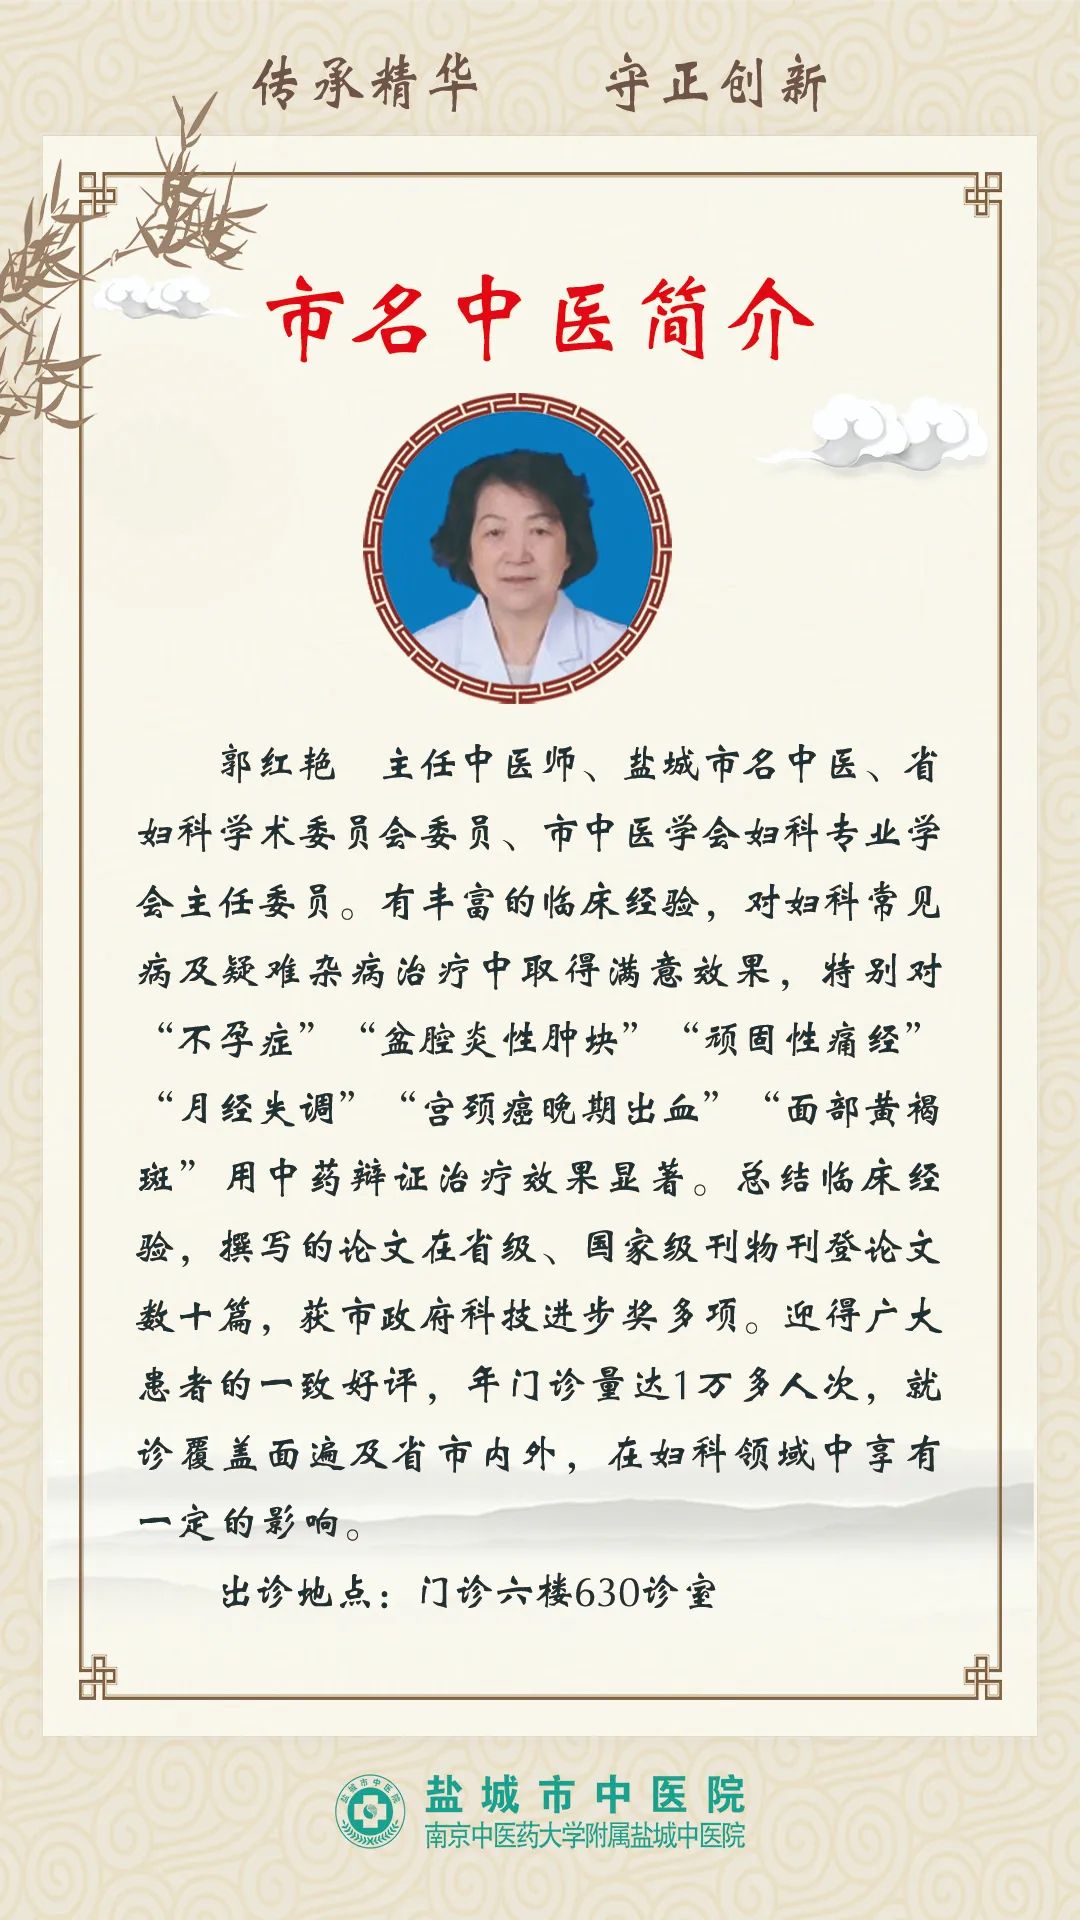 传承精华 守正创新
市名中医简介
郭红艳 主任中医师、盐城市名中医、省
妇科学术委员会委员、市中医学会妇科专业学
会主任委员。有丰富的临床经验，对妇科常见
病及疑难杂病治疗中取得满意效果，特别对
“不孕症”“盆腔炎性肿块”“顽固性痛经”
“月经失调”“宫颈癌晚期出血”“面部黄褐
斑”用中药辩证治疗效果显著。总结临床经
验，撰写的论文在省级、国家级刊物刊登论文
数十篇，获市政府科技进步奖多项。迎得广大
患者的一致好评，年门诊量达1万多人次，就
诊覆盖面遍及省市内外，在妇科领域中享有
一定的影响。
出诊地点：门诊六楼630诊室
盐城市中医院
盐城市中医院
南京中医药大学附属盐城中医院